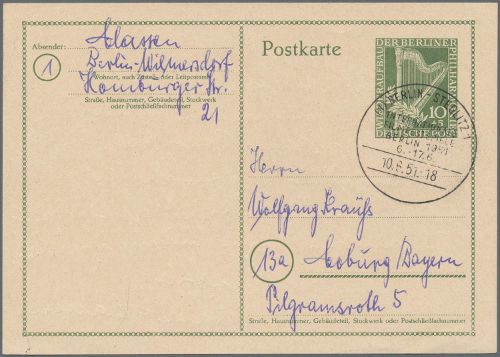 Absender: Classen
1 Berlin-Wilmersdorf
Wohnort, auch Zustell- oder Leitpostamt
Homburger Str.
Straße, Hausnummer, Gebäudeteil, Stockwerk oder Postschließfachnummer
21
Postkarte
WIEDERAUFBAU DER BERLINER PHILHARMONIE
10
+5
DEUTSCHE POST
BERLIN-STEGLITZ 1
INTERNATIONALE
BERLIN 1951
6.-17.6.
10.6.51.-18
Herrn
Wolfgang Krauß
13a Coburg/Bayern
Pilgramsroth 5
Straße, Hausnummer, Gebäudeteil, Stockwerk oder Postschließfachnummer